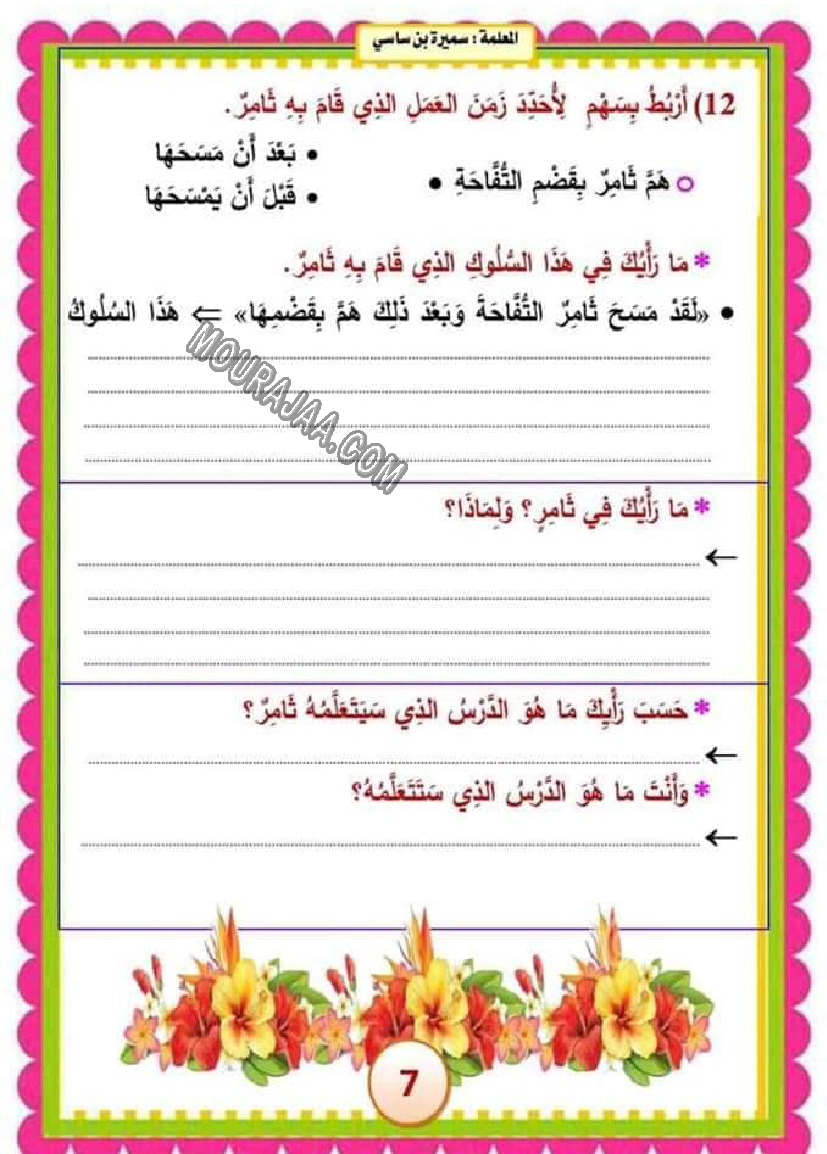 المعلمة : سميرة بن ساسي
12) أَرْبُطُ بِسَهْمٍ لِأُحَدِّدَ زَمَنَ العَمَلِ الذِي قَامَ بِهِ ثَامِرٌ.
○ هَمَّ ثَامِرٌ بِقَضْمِ التُّفَّاحَةِ •
• بَعْدَ أَنْ مَسَحَهَا
• قَبْلَ أَنْ يَمْسَحَهَا
* مَا رَأْيُكَ فِي هَذَا السُّلُوكِ الذِي قَامَ بِهِ ثَامِرٌ.
• «لَقَدْ مَسَحَ ثَامِرٌ التُّفَّاحَةَ وَبَعْدَ ذَلِكَ هَمَّ بِقَضْمِهَا» ⇐ هَذَا السُلُوكُ
MOURAJAA.COM
* مَا رَأْيُكَ فِي ثَامِرٍ؟ وَلِمَاذَا؟
* حَسَبَ رَأْيِكَ مَا هُوَ الدَّرْسُ الذِي سَيَتَعَلَّمُهُ ثَامِرٌ؟
* وَأَنْتَ مَا هُوَ الدَّرْسُ الذِي سَتَتَعَلَّمُهُ؟
7